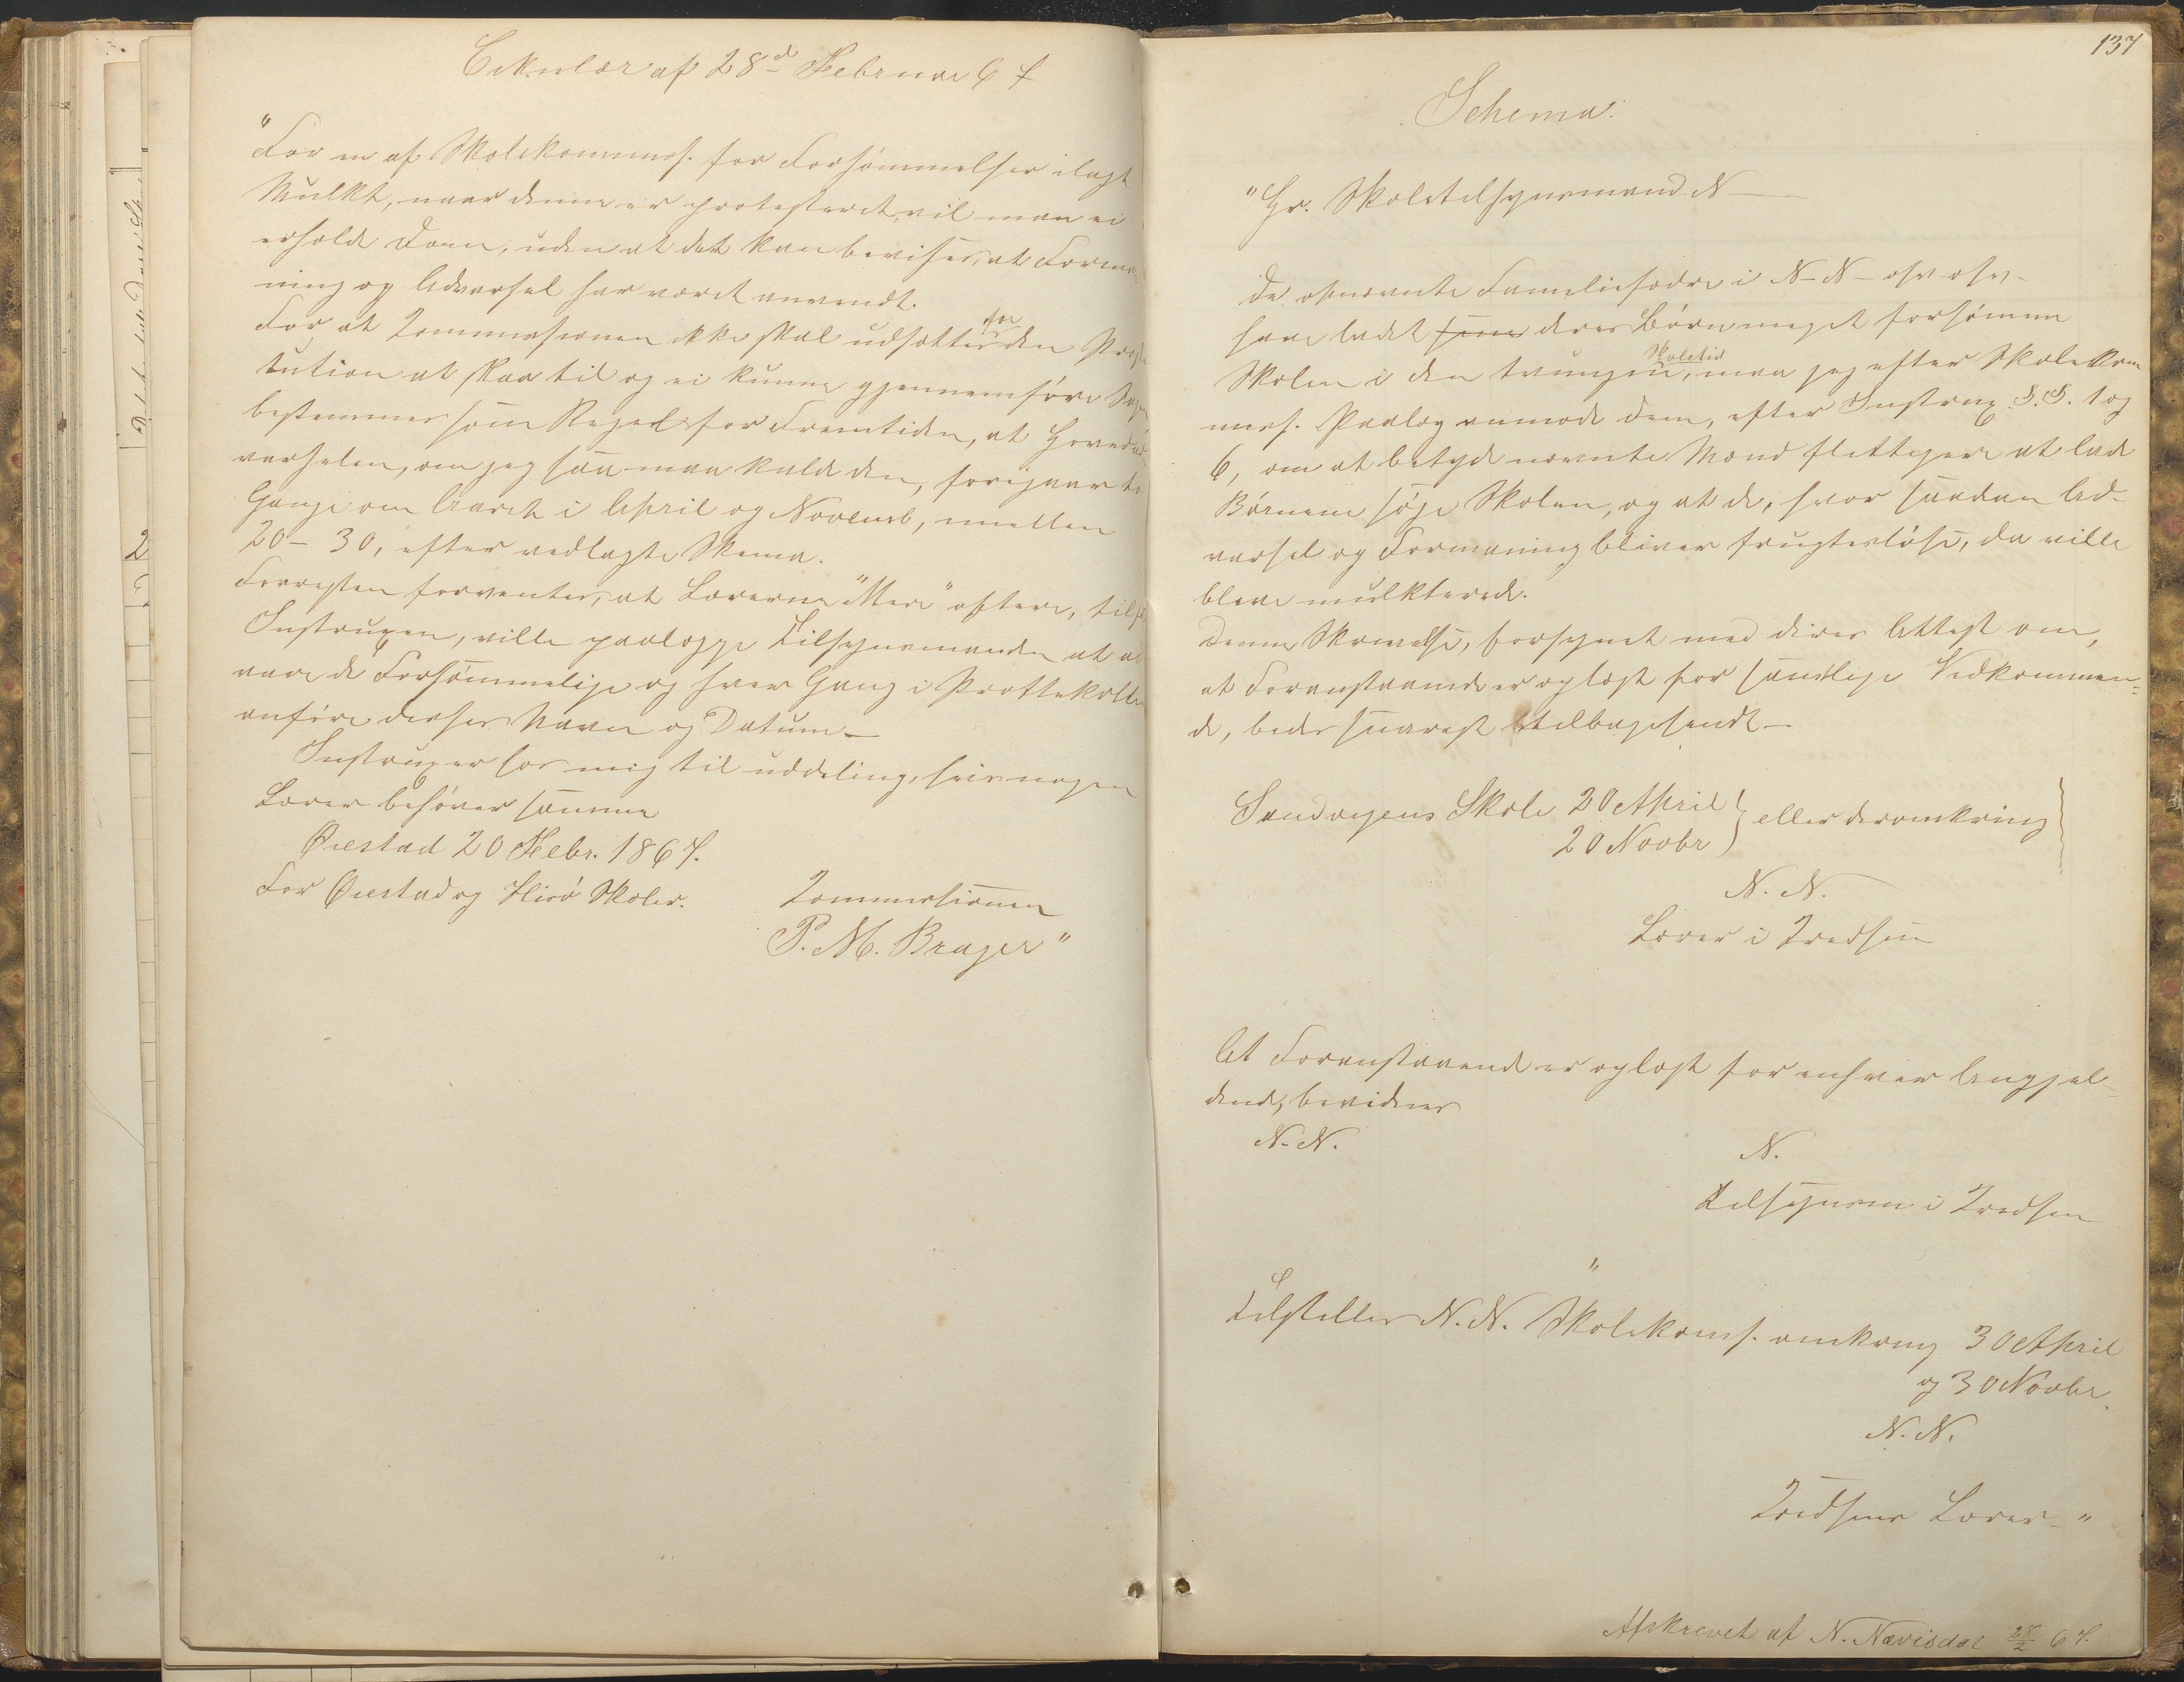 Cirkulær af 28d Februar 67
"For en af Skolekommis. for Forsømmelser ilagt
Mulkt, naar denne er protesteret, vil man ei
erholde Dom, uden at det kan bevises, at Forma-
ning og Advarsel har været anvendt.
For at Kommissionen ikke skal udsættes for den
tution at staa til og ei kunne gjennemføre Sagen
bestemmes som Regel for Fremtiden, at Hovedad-
varselen, om jeg saa maa kalde den, foregaar to
Gange om Aaret i April og Novemb, mellem
20 - 30, efter vedlagte Skema.
Forresten forventes, at Lærerne "Mere" oftere, tilf
Instruxen, ville paalægge Tilsynsmanden at ad
vare de Forsømmelige og hver Gang i Prottekollen
anføre deres Navn og Datum.-
Instruxer hos mig til uddeling, hvis nogen
Lærer behøver samme
Øiestad 20 Febr. 1867.
For Øiestad og Hisø Skoler.
Kommissionen
P. M. Brager"
137
Schema.
"Hr. Skoletilsynsmand N -
Da ofnævnte Familiefædre i N-N- osv osv-
have ladet sine deres Børn meget forsømme
Skolen i den tvungne Skoletid, maa jeg efter Skolekom
mis. Paalæg anmode Dem, efter Instrux §.§. 1 og
6, om at betyde nævnte Mænd flittigere at lade
Børnene søge Skolen, og at de, hvor saadan Ad-
varsel og Formaning bliver frugtesløse, da ville
blive mulkterede.
Denne Skrivelse, forsynet med Deres Attest om,
at Foranstaaende er oplæst for samtlige Vedkommen=
de, bedes snarest tilbagesendt -
Sandvigens Skole 20 April
20 Novbr } eller deromkring
N. N.
Lærer i Kredsen
At Foranstaaende er oplæst for enhver Angjæl-
dende, bevidnes
N. N.
N.
Tilsynsm i Kredsen
"
Tilstilles N. N. Skolekomis. omkring 30 April
og 30 Novbr.
N. N.
Kredsens Lærer - "
Afskrevet af N. Nævisdal 28/2 67.